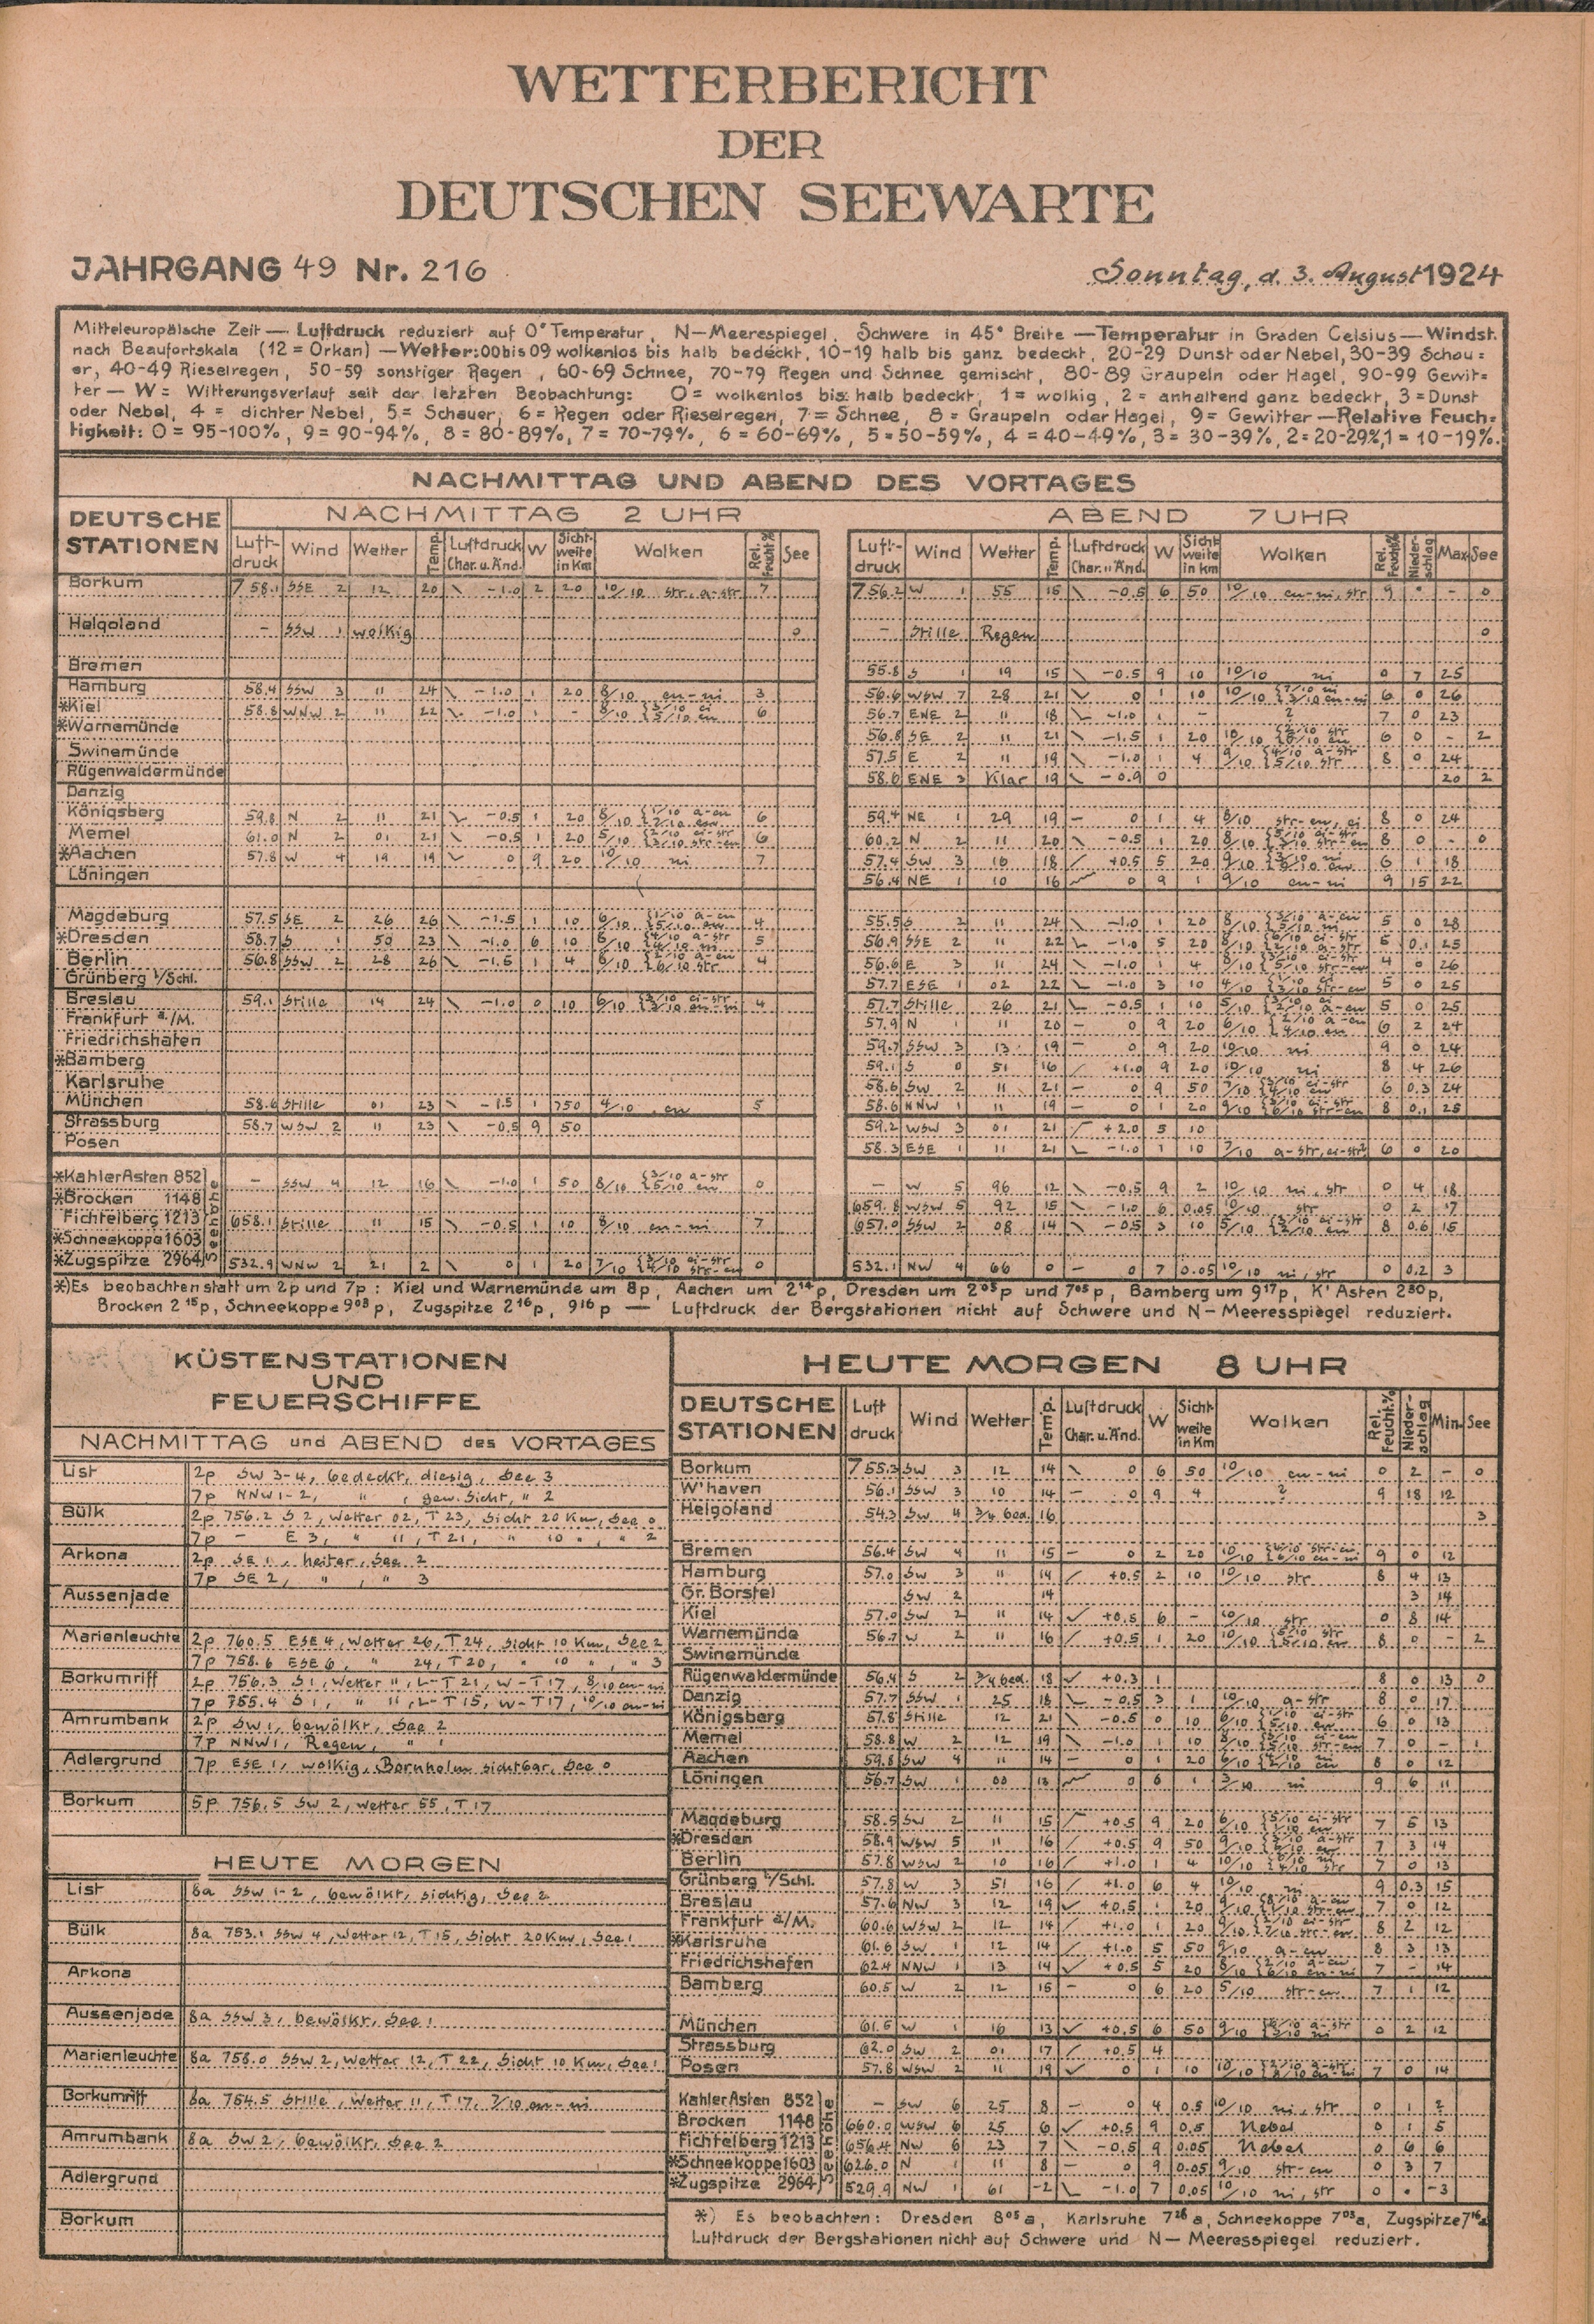 WETTERBERICHT
DER
DEUTSCHEN SEEWARTE
JAHRGANG 49 Nr. 216
Sonntag, d. 3. August 1924
Mitteleuropäische Zeit — Luftdruck reduziert auf 0° Temperatur, N—Meerespiegel, Schwere in 45° Breite —Temperatur in Graden Celsius— Windst.
nach Beaufortskala (12 = Orkan) —Wetter: 00 bis 09 wolkenlos bis halb bedeckt, 10-19 halb bis ganz bedeckt, 20-29 Dunst oder Nebel, 30-39 Schau=
er, 40-49 Rieselregen, 50-59 sonstiger Regen, 60-69 Schnee, 70-79 Regen und Schnee gemischt, 80-89 Graupeln oder Hagel, 90-99 Gewit=
ter — W = Witterungsverlauf seit der letzten Beobachtung: 0 = wolkenlos bis halb bedeckt, 1 = wolkig, 2 = anhaltend ganz bedeckt, 3 = Dunst
oder Nebel, 4 = dichter Nebel, 5 = Schauer, 6 = Regen oder Rieselregen, 7 = Schnee, 8 = Graupeln oder Hagel, 9 = Gewitter —Relative Feuch=
tigkeit: 0 = 95-100%, 9 = 90-94%, 8 = 80-89%, 7 = 70-79%, 6 = 60-69%, 5 = 50-59%, 4 = 40-49%, 3 = 30-39%, 2 = 20-29%, 1 = 10-19%.
NACHMITTAG UND ABEND DES VORTAGES
DEUTSCHE STATIONEN
NACHMITTAG 2 UHR
ABEND 7 UHR
Luft-druck Wind Wetter Temp. Luftdruck Char. u. Änd. W Sicht-weite in Km Wolken Rel. Feucht.% See
Luft-druck Wind Wetter Temp. Luftdruck Char. u. Änd. W Sicht-weite in Km Wolken Rel. Feucht.% Nieder-schlag Max See
Borkum 758.1 SSE 2 12 20 -1.0 2 20 10/10 str, a-str 7 756.2 W 1 55 15 -0.5 6 50 10/10 cu-ni, str 9 • - 0
Helgoland - SSW 1 wolkig 0 - Stille Regen 0
Bremen 55.8 S 1 19 15 -0.5 9 10 10/10 ni 0 7 25
Hamburg 58.4 SSW 3 11 24 -1.0 1 20 8/10 cu-ni 3 56.6 WSW 7 28 21 0 1 10 10/10 6 0 26
*Kiel 58.8 WNW 2 11 22 -1.0 1 - 6 56.7 ENE 2 11 18 -1.0 1 - ? 7 0 23
*Warnemünde 56.8 SE 2 11 21 -1.5 1 20 10/10 6 0 - 2
Swinemünde 57.5 E 2 11 19 -1.0 1 4 9/10 8 0 24
Rügenwaldermünde 58.6 ENE 3 Klar 19 -0.9 0 20 2
Danzig
Königsberg 59.8 N 2 11 21 -0.5 1 20 8/10 6 59.4 NE 1 29 19 - 0 1 4 8/10 str-cu, ci 8 0 24
Memel 61.0 N 2 01 21 -0.5 1 20 5/10 6 60.2 N 2 11 20 -0.5 1 20 8/10 8 0 - 0
*Aachen 57.8 W 4 19 19 0 9 20 10/10 ni 7 57.4 SW 3 16 18 +0.5 5 20 9/10 6 1 18
Löningen 56.4 NE 1 10 16 0 9 1 9/10 cu-ni 9 15 22
Magdeburg 57.5 SE 2 26 26 -1.5 1 10 6/10 4 55.5 S 2 11 24 -1.0 1 20 8/10 5 0 28
*Dresden 58.7 S 1 50 23 -1.0 6 10 5 56.9 SSE 2 11 22 -1.0 5 20 8/10 5 0.1 25
Berlin 56.8 SSW 2 28 26 -1.5 1 4 8/10 4 56.6 E 3 11 24 -1.0 1 4 8/10 4 0 26
Grünberg i/Schl. 57.7 ESE 1 02 22 -1.0 3 10 4/10 5 0 25
Breslau 59.1 Stille 14 24 -1.0 0 10 6/10 4 57.7 Stille 26 21 -0.5 1 10 5/10 5 0 25
Frankfurt a./M. 57.9 N 1 11 20 - 0 9 20 6/10 6 2 24
Friedrichshafen 59.7 SSW 3 13 19 - 0 9 20 10/10 ni 9 0 24
*Bamberg 59.1 S 0 51 16 +1.0 9 20 10/10 ni 8 4 26
Karlsruhe 58.6 SW 2 11 21 - 0 9 50 7/10 6 0.3 24
München 58.6 Stille 01 23 -1.5 1 750 4/10 cu 5 58.6 NNW 1 11 19 - 0 1 20 9/10 8 0.1 25
Strassburg 58.7 WSW 2 11 23 -0.5 9 50 59.2 WSW 3 01 21 +2.0 5 10
Posen 58.3 ESE 1 11 21 -1.0 1 10 7/10 a-str, ci-str 6 0 20
Seehöhe
*Kahler Asten 852 - SSW 4 12 16 -1.0 1 50 8/10 0 - W 5 96 12 -0.5 9 2 10/10 ni, str 0 4 18
*Brocken 1148 659.8 WSW 5 92 15 -1.0 6 0.05 10/10 str 0 2 17
Fichtelberg 1213 658.1 Stille 11 15 -0.5 1 10 8/10 cu-ni 7 657.0 SSW 2 08 14 -0.5 3 10 5/10 8 0.6 15
*Schneekoppe 1603
*Zugspitze 2964 532.9 WNW 2 21 2 0 1 20 7/10 0 532.1 NW 4 66 0 - 0 7 0.05 10/10 ni, str 0 0.2 3
*) Es beobachten statt um 2p und 7p : Kiel und Warnemünde um 8p, Aachen um 2¹⁴p, Dresden um 2⁰⁵p und 7⁰⁵p, Bamberg um 9¹⁷p, K' Asten 2³⁰p,
Brocken 2¹⁵p, Schneekoppe 9⁰³p, Zugspitze 2¹⁶p, 9¹⁶p — Luftdruck der Bergstationen nicht auf Schwere und N—Meeresspiegel reduziert.
KÜSTENSTATIONEN
UND
FEUERSCHIFFE
NACHMITTAG und ABEND des VORTAGES
List 2p SW 3-4, bedeckt, diesig, See 3
7p NNW 1-2, " , gew. Sicht, " 2
Bülk 2p 756.2 S 2, Wetter 02, T 23, Sicht 20 Km, See 0
7p - E 3, " 11, T 21, " 10 " , " 2
Arkona 2p SE 1, heiter, See 2
7p SE 2, " , " 3
Aussenjade
Marienleuchte 2p 760.5 ESE 4, Wetter 26, T 24, Sicht 10 Km, See 2
7p 758.6 ESE 6, " 24, T 20, " 10 " , " 3
Borkumriff 2p 756.3 S 1, Wetter 11, L-T 21, W-T 17, 8/10 cu-ni
7p 755.4 S 1, " 11, L-T 15, W-T 17, 10/10 cu-ni
Amrumbank 2p SW 1, bewölkt, See 2
7p NNW 1, Regen, " 1
Adlergrund 7p ESE 1, wolkig, Bornholm sichtbar, See 0
Borkum 5p 756.5 SW 2, Wetter 55, T 17
HEUTE MORGEN
List 8a SSW 1-2, bewölkt, sichtig, See 2
Bülk 8a 753.1 SSW 4, Wetter 12, T 15, Sicht 20 Km, See 1
Arkona
Aussenjade 8a SSW 3, bewölkt, See 1
Marienleuchte 8a 758.0 SSW 2, Wetter 12, T 22, Sicht 10 Km, See 1
Borkumriff 8a 754.5 Stille, Wetter 11, T 17, 7/10 cu-ni
Amrumbank 8a SW 2, bewölkt, See 2
Adlergrund
Borkum
HEUTE MORGEN 8 UHR
DEUTSCHE STATIONEN Luft druck Wind Wetter Temp. Luftdruck Char. u. Änd. W Sicht-weite in Km Wolken Rel. Feucht.% Nieder-schlag Min. See
Borkum 755.3 SW 3 12 14 0 6 50 10/10 cu-ni 0 2 - 0
W'haven 56.1 SSW 3 10 14 - 0 9 4 ? 9 18 12
Helgoland 54.3 SW 4 3/4 bed. 16 3
Bremen 56.4 SW 4 11 15 - 0 2 20 10/10 9 0 12
Hamburg 57.0 SW 3 11 14 +0.5 2 10 10/10 str 8 4 13
Gr. Borstel SW 2 14 3 14
Kiel 57.0 SW 2 11 14 +0.5 6 - 10/10 str 0 8 14
Warnemünde 56.7 W 2 11 16 +0.5 1 20 10/10 8 0 - 2
Swinemünde
Rügenwaldermünde 56.4 S 2 3/4 bed. 18 +0.3 1 8 0 13 0
Danzig 57.7 SSW 1 25 18 -0.5 3 1 10/10 a-str 8 0 17
Königsberg 57.8 Stille 12 21 -0.5 0 10 6/10 6 0 13
Memel 58.8 W 2 12 19 -1.0 1 10 8/10 7 0 - 1
Aachen 59.8 SW 4 11 14 - 0 1 20 6/10 8 0 12
Löningen 56.7 SW 1 00 13 0 6 1 3/10 ni 9 6 11
Magdeburg 58.5 SW 2 11 15 +0.5 9 20 6/10 7 5 13
*Dresden 58.9 WSW 5 11 16 +0.5 9 50 9/10 7 3 14
Berlin 57.8 WSW 2 10 16 +1.0 1 4 10/10 7 0 13
Grünberg i/Schl. 57.8 W 3 51 16 +1.0 6 4 10/10 ni 9 0.3 15
Breslau 57.6 NW 3 12 19 +0.5 1 20 9/10 7 0 12
Frankfurt a/M. 60.6 WSW 2 12 14 +1.0 1 20 9/10 8 2 12
*Karlsruhe 61.6 SW 1 12 14 +1.0 5 50 9/10 a-cu 8 3 13
Friedrichshafen 62.4 NNW 1 13 14 +0.5 5 20 8/10 7 - 14
Bamberg 60.5 W 2 12 15 - 0 6 20 5/10 str-cu 7 1 12
München 61.5 W 1 16 13 +0.5 6 50 9/10 0 2 12
Strassburg 62.0 SW 2 01 17 +0.5 4
Posen 57.8 WSW 2 11 19 0 1 10 10/10 7 0 14
Seehöhe
Kahler Asten 852 - SW 6 25 8 - 0 4 0.5 10/10 ni, str 0 1 2
Brocken 1148 660.0 WSW 6 25 6 +0.5 9 0.5 Nebel 0 1 5
Fichtelberg 1213 656.4 NW 6 23 7 -0.5 9 0.05 Nebel 0 6 6
*Schneekoppe 1603 626.0 N 1 11 8 - 0 9 0.05 9/10 str-cu 0 3 7
*Zugspitze 2964 529.9 NW 1 61 -2 -1.0 7 0.05 10/10 ni, str 0 • -3
*) Es beobachten: Dresden 8⁰⁵a, Karlsruhe 7²⁶a, Schneekoppe 7⁰³a, Zugspitze 7¹⁶a
Luftdruck der Bergstationen nicht auf Schwere und N— Meeresspiegel reduziert.